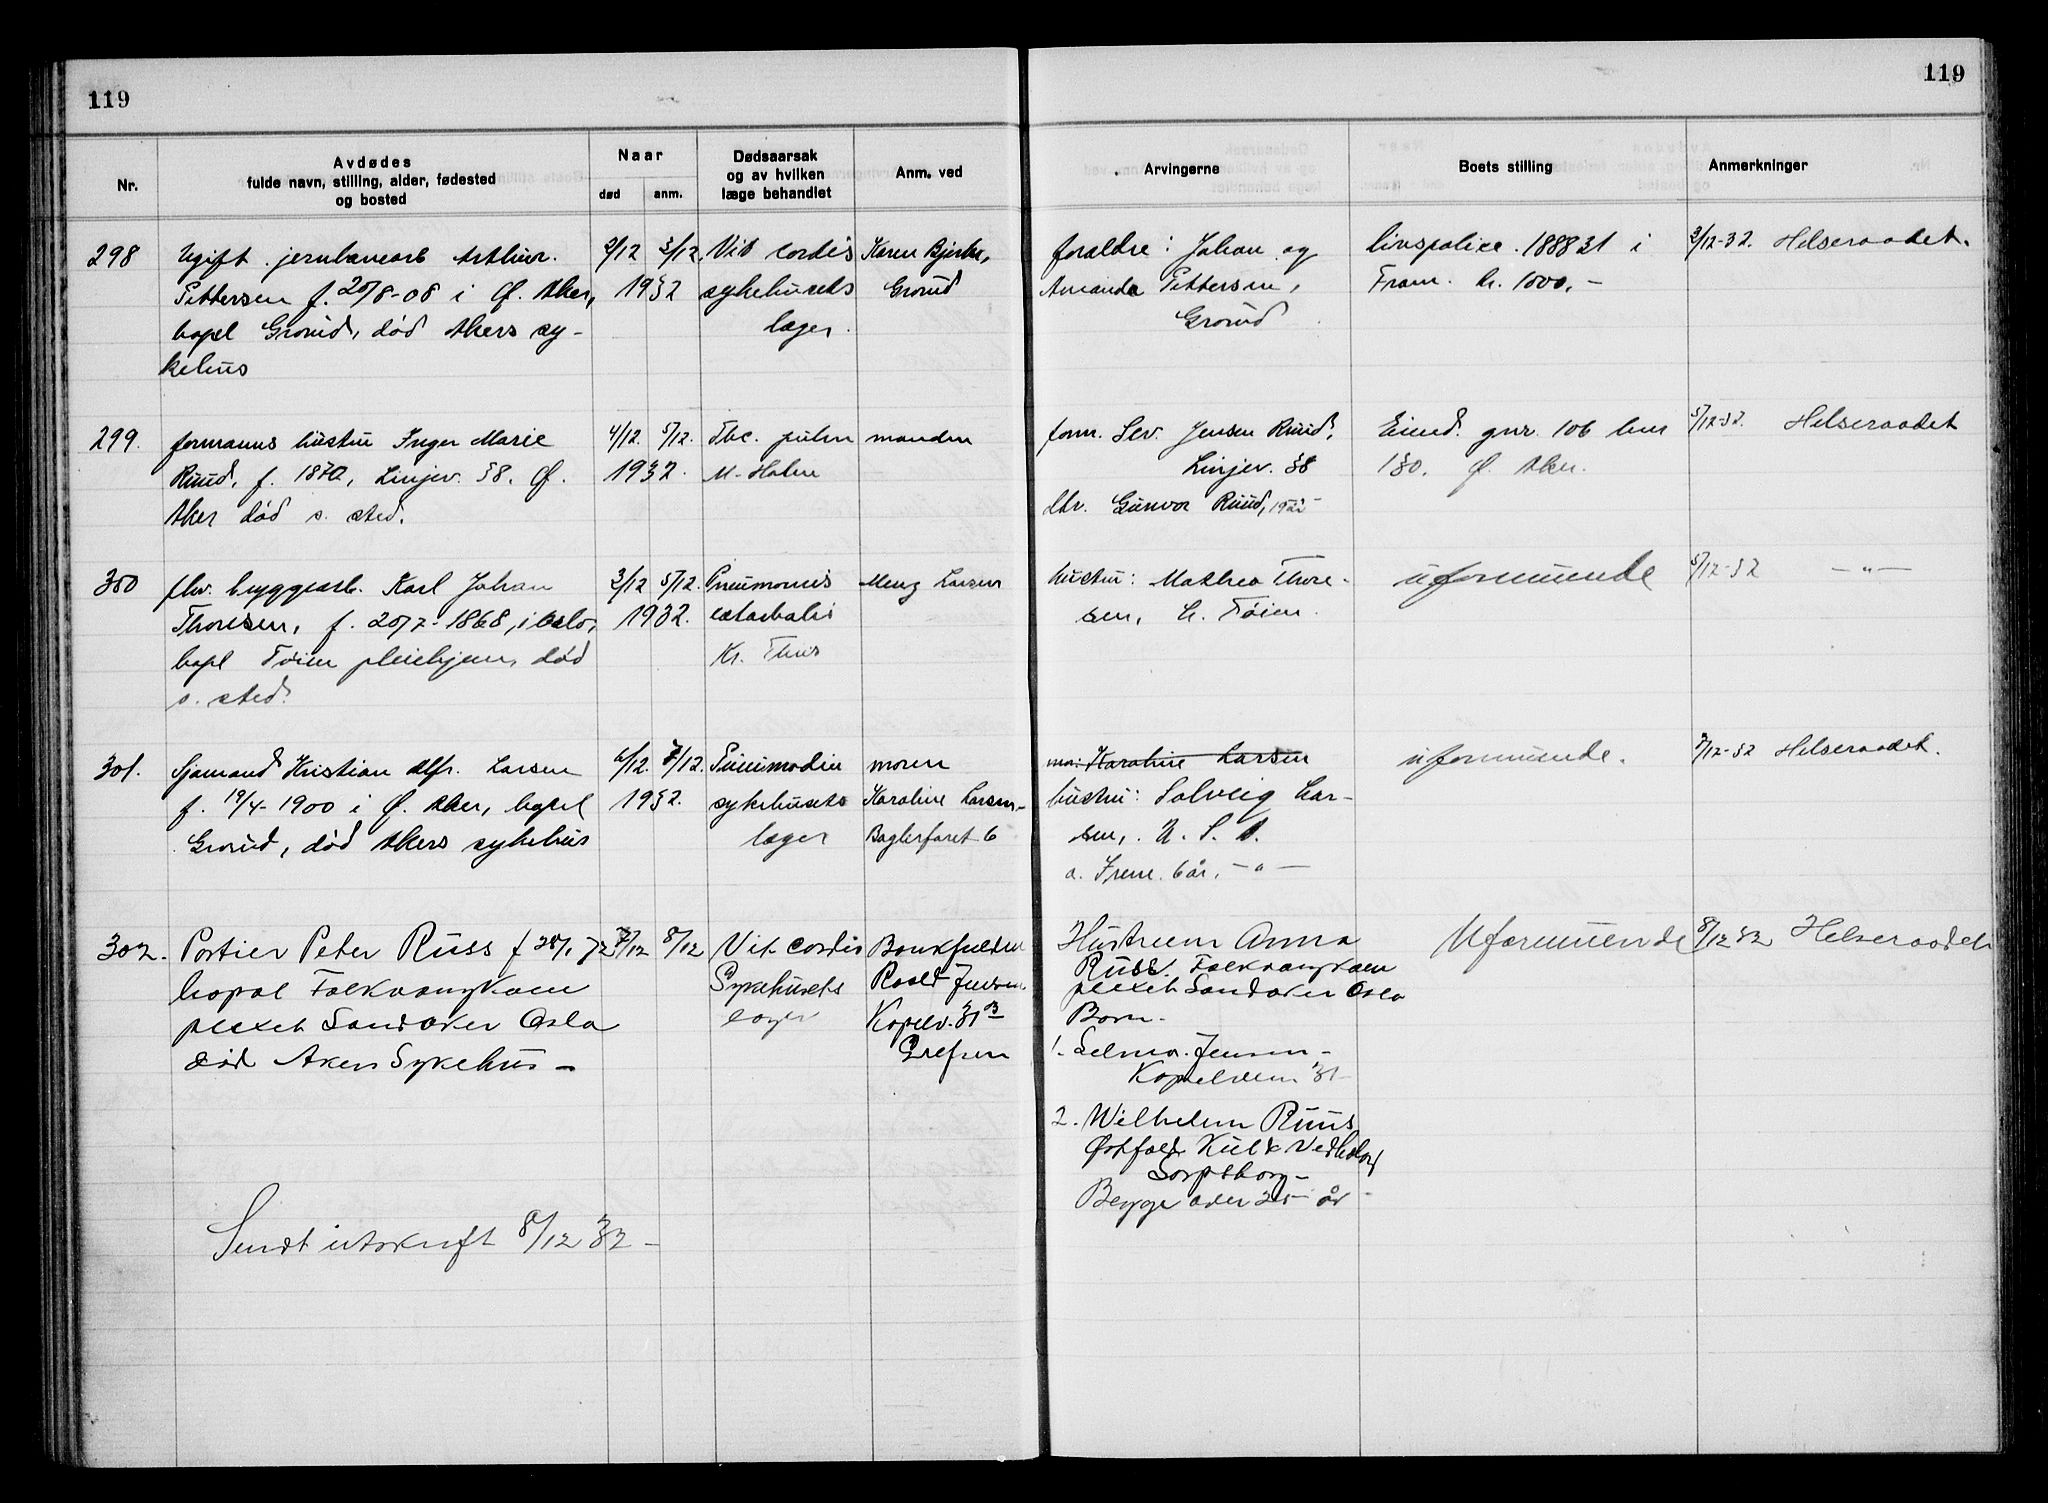 119
119
Nr.
Avdødes
fulde navn, stilling, alder, fødested
og bosted
Naar
død
anm.
Dødsaarsak
og av hvilken
læge behandlet
Anm. ved
Arvingerne
Boets stilling
Anmerkninger
298
Ugift jernbanearb Arthur
Pettersen f. 20/8-08 i Ø. Aker,
bopl Grorud, død Akers sy-
kehus
2/12 3/12
1932
Vit cordis
sykehusets
læger.
Karen Bjerke,
Grorud
foreldre: Johan og
Amanda Pettersen,
Grorud
livspolice 188831 i
Fram. kr. 1000,-
3/12-32. Helseraadet.
299.
formanns hustru Inger Marie
Ruud, f. 1870, Linjev. 58. Ø.
Aker død s. sted.
4/12. 5/12.
1932.
Tbc. pulm
M. Holm
manden
form. Sev. Jensen Ruud,
Linjev. 58
dtr. Gunvor Ruud,
Eiend. gnr. 106 bnr
130. Ø. Aker.
5/12-32. Helseraadet
300
fhv. bryggearb. Karl Johan
Thoresen, f. 20/7-1868, i Oslo,
bopl Tøien pleiehjem, død
s. sted.
3/12 5/12.
1932.
Pneumonis
catarhalis
Kr. Thus
Meng Larsen
hustru: Mathea Thore-
sen, h. Tøien.
uformuende
5/12-32 -"-
301.
Sjømand Kristian Alfr. Larsen
f. 19/4-1900 i Ø. Aker, bopel
Grorud, død Akers sykehus
6/12. 7/12.
1932.
sykehusets
læger
moren
Karoline Larsen
Baglerfaret 6
mor: Karoline Larsen
hustru: Solveig Lar-
sen, U. S. A.
a. Irene 6 år. -"-
uformuende.
7/12-32 Helseraadet.
302.
Portier Peter Russ f 28/1 72
bopal Folkvangkom
plexet Sandaker Oslo
død Akers Sykehus -
7/12 8/12
Vit. cordis
Sykehusets
læger
Roald Jensen
Kapelv. 31 B
Grefsen
Hustruen Anna
Russ. Folkvangkom
plexet Sandaker Oslo
Barn.
1. Selma Jensen -
Kapelveien 31
2. Wilhelm Ruus
Østfold Kul & Vedhdlg
Sarpsborg -
Begge over 21 år -
Uformuende
8/12 32 Helseraadet
Sendt utskrift 8/12 32 -